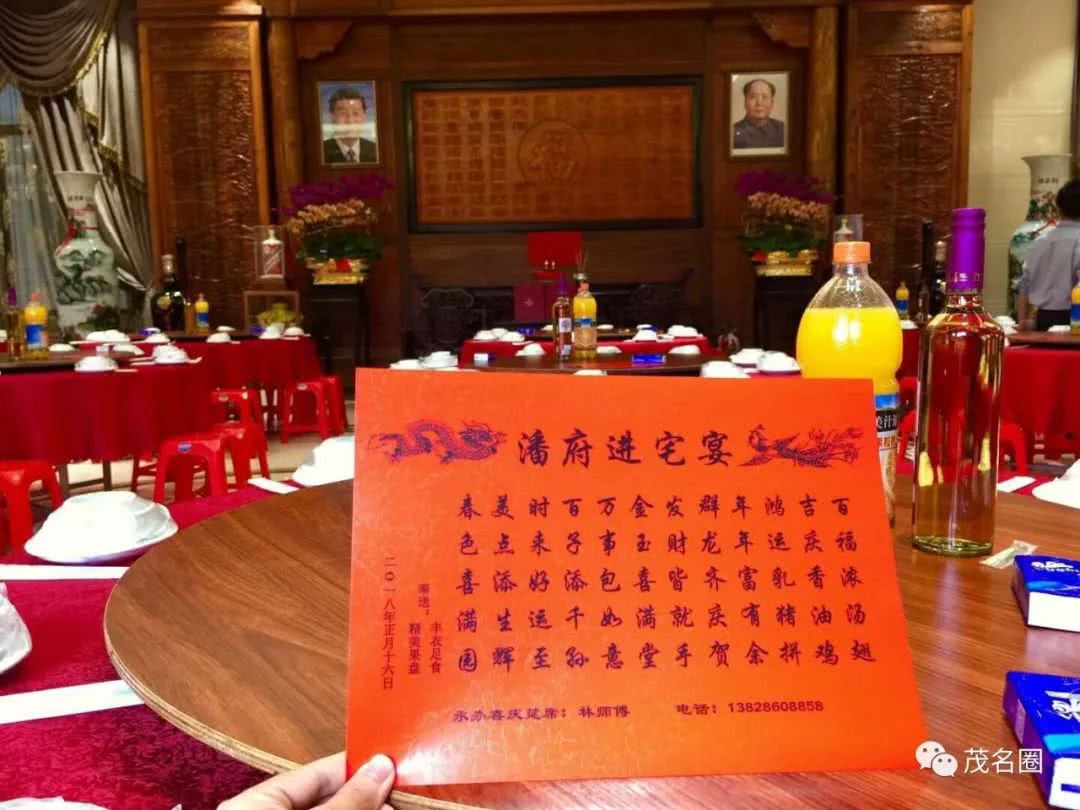 福
潘府进宅宴
百福浓汤翅
吉庆香油鸡
鸿运乳猪拼
年年富有余
群龙齐庆贺
发财皆就手
金玉喜满堂
万事包如意
百子添千孙
时来好运至
美点添生辉
春色喜满园
奉送：丰衣足食
精美果盘
二0一八年正月十六日
承办喜庆筵席：林师傅 电话：13828608858
茂名圈